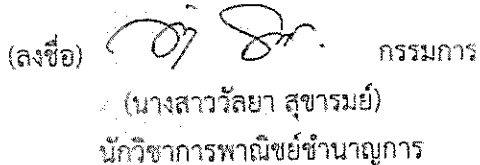 (ลงชื่อ) กรรมการ
(นางสาววัลยา สุขารมย์)
นักวิชาการพาณิชย์ชำนาญการ